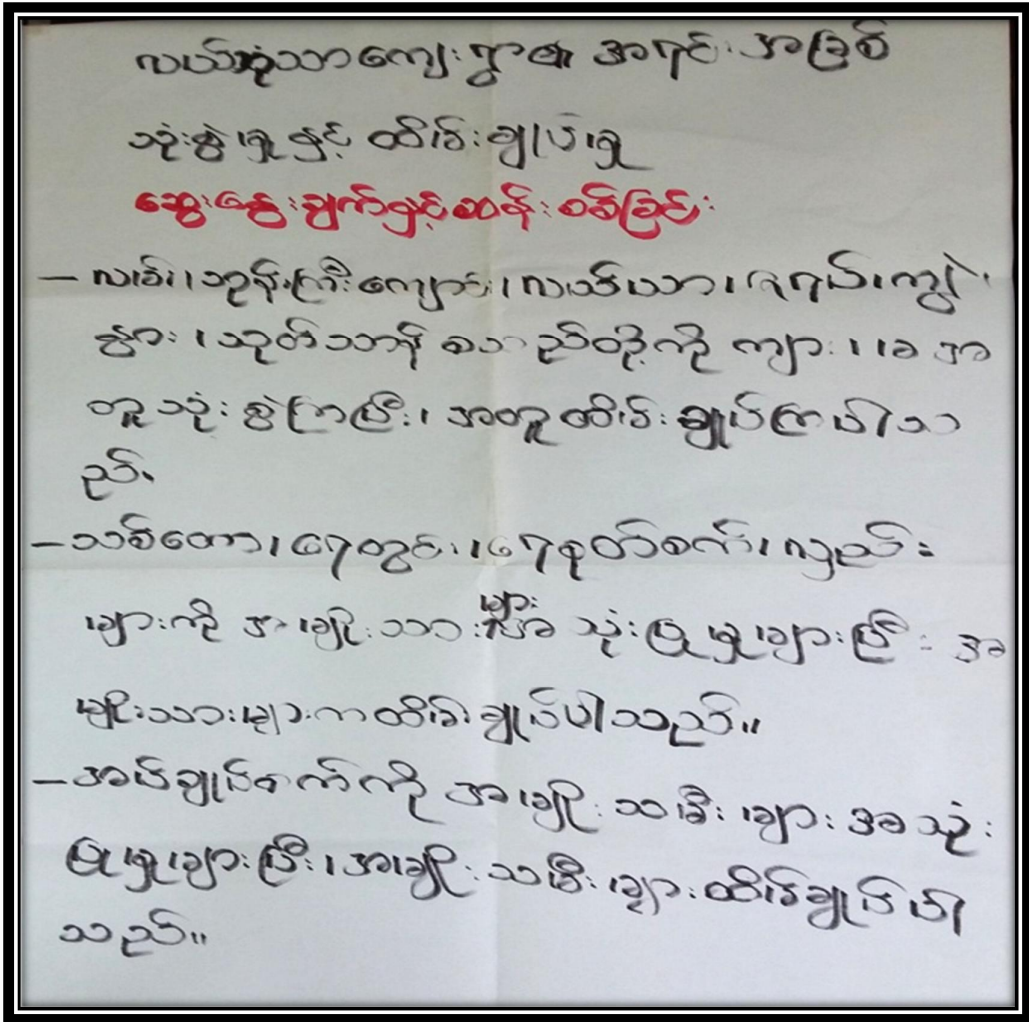 လယ်ဆုံသာကျေးရွာ၏ အရင်းအမြစ်
သုံးစွဲမှုနှင့် ထိမ်းချုပ်မှု
ဆွေးနွေးချက်နှင့်ဆန်းစစ်ခြင်း
– လမ်း၊ ဘုန်းကြီးကျောင်း၊ လယ်ယာ၊ ဥယျာဉ်၊ ကျွဲ၊
နွား၊ သုတ်သာန် စသည်တို့ကို ကျား၊ မ အ
တူသုံးစွဲကြပြီး၊ အတူထိမ်းချုပ်ကြပါသ
ည်။
– သစ်တော၊ ရေတွင်း၊ ရေစုတ်စက်၊ လှည်း
များကို အမျိုးသားများ သုံးပြုမှုများပြီး အ
မျိုးသားများကထိမ်းချုပ်ပါသည်။
– အပ်ချုပ်စက်ကို အမျိုးသမီးများ အသုံး
ပြုမှုများပြီး၊ အမျိုးသမီးများထိမ်းချုပ်ပါ
သည်။